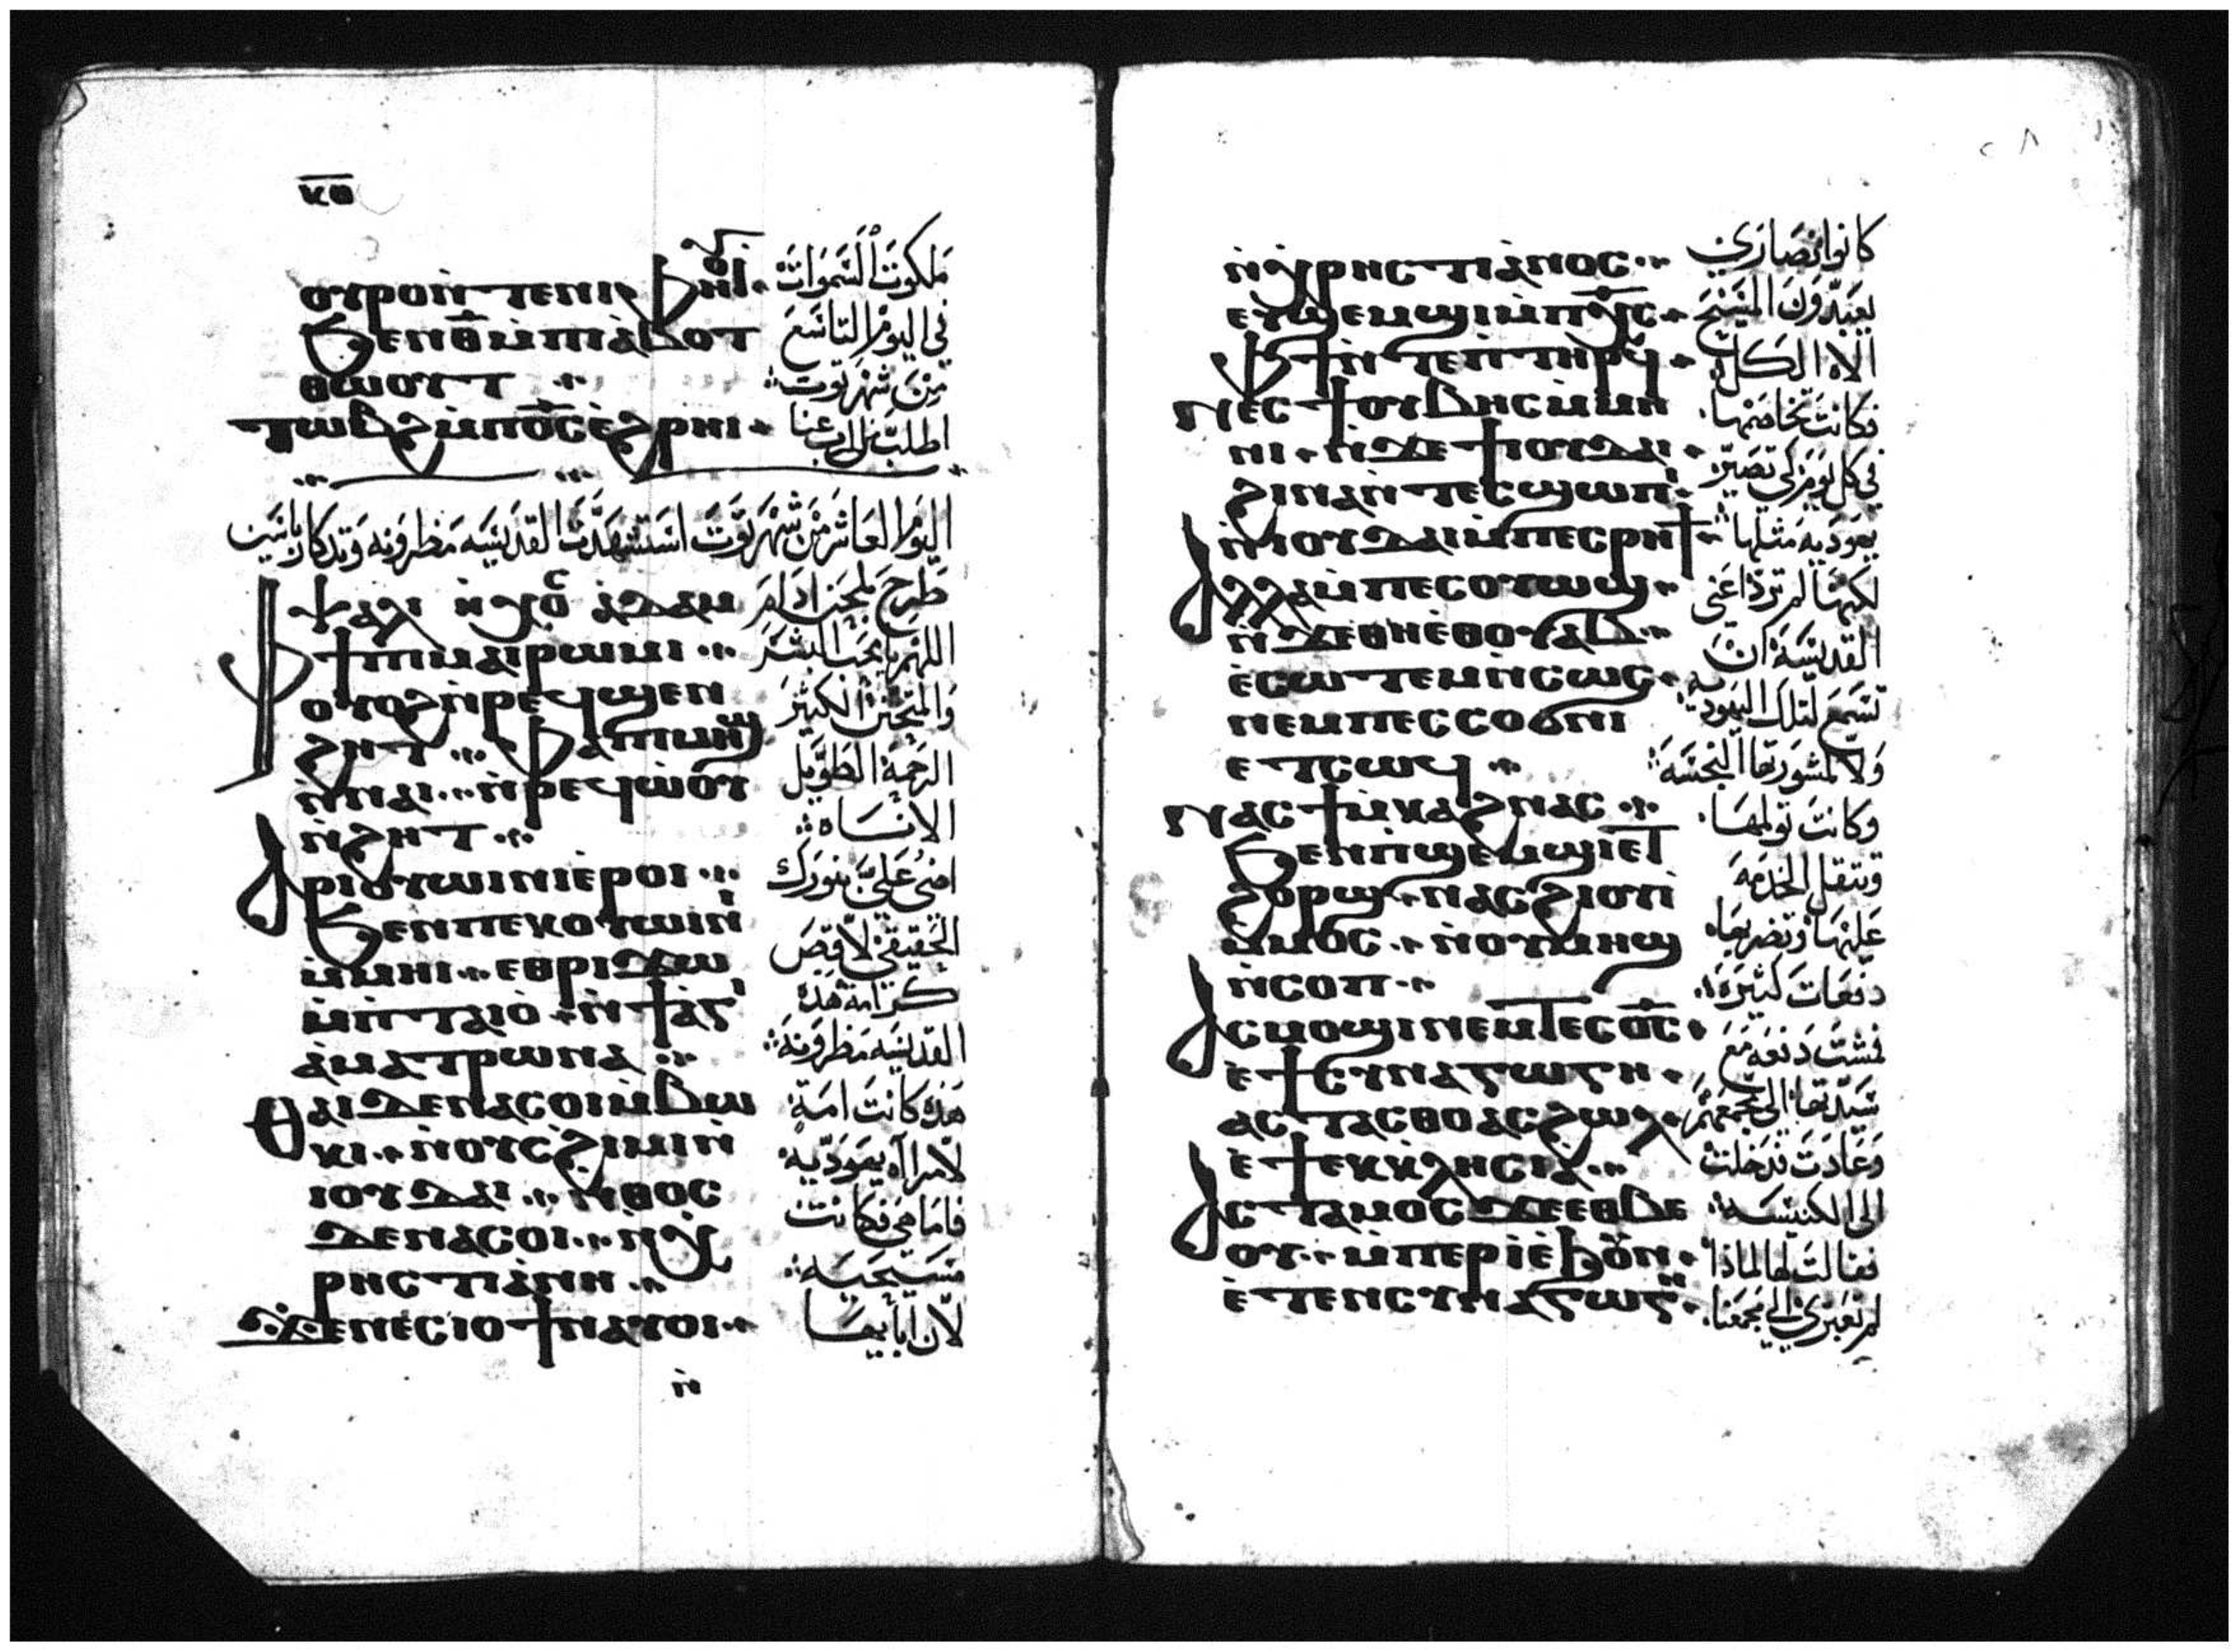 ⲕⲑ
ⲟⲩⲣⲟ ⲛ̀ⲧⲉⲛⲓⲫⲏⲟⲩⲓ̀
ϧⲉⲛ ⲑ̅ ⲙ̀ⲡⲓⲁ̀ⲃⲟⲧ
ⲑⲱⲟⲩⲧ ⁘
ⲧⲱⲃϩ ⲙ̀ⲡⲟ̅ⲥ̅ ⲉ̀ϩⲣⲏⲓ
ملكوت السموات
في اليوم التاسع
من شهر توت
اطلب من الرب عنا
اليوم العاشر من شهر توت استشهدت القديسه مطرونه وتدكار باسين
ⲯⲁⲗⲓ ⲛ̀ⲏⲭⲟⲥ ⲁ̀ⲇⲁⲙ
ⲫϯ ⲡⲓⲙⲁⲓⲣⲱⲙⲓ
ⲟⲩⲟϩ ⲛ̀ⲣⲉϥϣⲉⲛ
ϩⲏⲧ ⁘ ⲫⲁ ⲡⲓⲙⲏϣ
ⲛ̀ⲛⲁⲓ ⁘ ⲛ̀ⲣⲉϥⲱ̀ⲟⲩ
ⲛ̀ϩⲏⲧ ⁘
ⲁⲣⲓⲟⲩⲱⲓⲛⲓ ⲉ̀ⲣⲟⲓ
ϧⲉⲛ ⲡⲉⲕⲟⲩⲱⲓⲛⲓ
ⲙ̀ⲙⲏⲓ ⁘ ⲉⲑⲣⲓϫⲱ
ⲙ̀ⲡⲧⲁⲓⲟ̀ ⲛ̀ϯⲁ̀ⲅⲓ
ⲁ̀ ⲙⲁⲧⲣⲱⲛⲁ ⁘
ⲑⲁⲓ ⲇⲉ ⲛⲁⲥⲟⲓ ⲙ̀ⲃⲱ
ⲕⲓ ⁘ ⲛ̀ⲟⲩⲥϩⲓⲙⲓ ⲛ̀
ⲓⲟⲩⲇⲁⲓ ⁘ ⲛ̀ⲑⲟⲥ
ⲇⲉ ⲛⲁⲥⲟⲓ ⁘ ⲛ̀ⲭ
ⲣⲏⲥⲧⲓⲁⲛⲏ ⁘
ϫⲉ ⲛⲉⲥⲓⲟϯ ⲛⲁⲩⲟⲓ
طرح بلحن ادام
اللهم يا محب البشر
والمتحنن الكثير
الرحمة الطويل
الاناه
امنى على بنورك
الحقيقي لاقص
كرامة هذه
القديسه مطرونه
هذه كانت امة
لامراه يهوديه
فاما هي فكانت
مسيحيه
لان ابايها
ⲛ̀
ⲛ̀ⲭⲣⲏⲥⲧⲓⲁⲛⲟⲥ ⁘
ⲉⲩϣⲉⲙϣⲓ ⲙ̀ⲡⲭ̅ⲥ̅
ⲫϯ ⲛ̀ⲧⲉ ⲡⲧⲏⲣϥ
ⲛⲉⲥϯⲟⲩⲃⲏⲥ ⲙ̀ⲙⲏ
ⲛⲓ ⁘ ⲛ̀ϫⲉ ϯⲓⲟⲩⲇⲁⲓ
ϩⲓⲛⲁ ⲛ̀ⲧⲉⲥϣⲱⲡⲓ
ⲛ̀ⲓⲟⲩⲇⲁⲓ ⲙ̀ⲡⲉⲥⲣⲏϯ
ⲁⲗⲗⲁ ⲙ̀ⲡⲉⲥⲟⲩⲱϣ
ⲛ̀ϫⲉ ⲑⲏⲉ̀ⲑⲟⲩⲁⲃ
ⲉ̀ⲥⲱⲧⲉⲙ ⲛ̀ⲥⲱⲥ
ⲛⲉⲙ ⲡⲉⲥⲥⲟϭⲛⲓ
ⲉⲧⲥⲱϥ ⁘
ⲛⲁⲥϯⲙ̀ⲕⲁϩ ⲛⲁⲥ ⁘
ϧⲉⲛ ⲡϣⲉⲙϣⲓ ⲉⲧ
ϩⲟⲣϣ ⁘ ⲛⲁⲥϩⲓⲟⲩⲓ̀
ⲙ̀ⲙⲟⲥ ⁘ ⲛ̀ⲟⲩⲙⲏϣ
ⲛ̀ⲥⲟⲡ ⁘
ⲁⲥⲙⲟϣⲓ ⲛⲉⲙ ⲧⲉⲥⲟ̅ⲥ̅
ⲉ̀ϯⲥⲩⲛⲁⲅⲱⲅⲏ
ⲁⲥⲧⲁⲥⲑⲟ ⲁⲥϩⲱⲗ
ⲉ̀ϯⲉⲕⲕⲗⲏⲥⲓⲁ ⁘
ⲁⲥⲧⲁⲙⲟⲥ ϫⲉ ⲉⲑⲃⲉ
ⲟⲩ ⁘ ⲙ̀ⲡⲉⲣⲓ̀ ⲉ̀ϧⲟⲩⲛ
ⲉ̀ⲧⲉⲛⲥⲩⲛⲁⲅⲱⲅⲏ
٢٨
كانوا نصارى
يعبدون المسيح
الاه الكل
فكانت تخاصمها
في كل يوم لكي تصير
يهوديه مثلها
لكنها لم ترد اعني
القديسة ان
تسمع لتلك اليهوديه
ولا لمشورتها النجسه
وكانت تولمها
وتثقل الخدمه
عليها وتضربها
دفعات كثيره
فمشت دفعه مع
سيدتها الى مجمعهم
وعادت فدخلت
الى الكنيسه
فقالت لها لماذا
لم تعبري الى مجمعنا